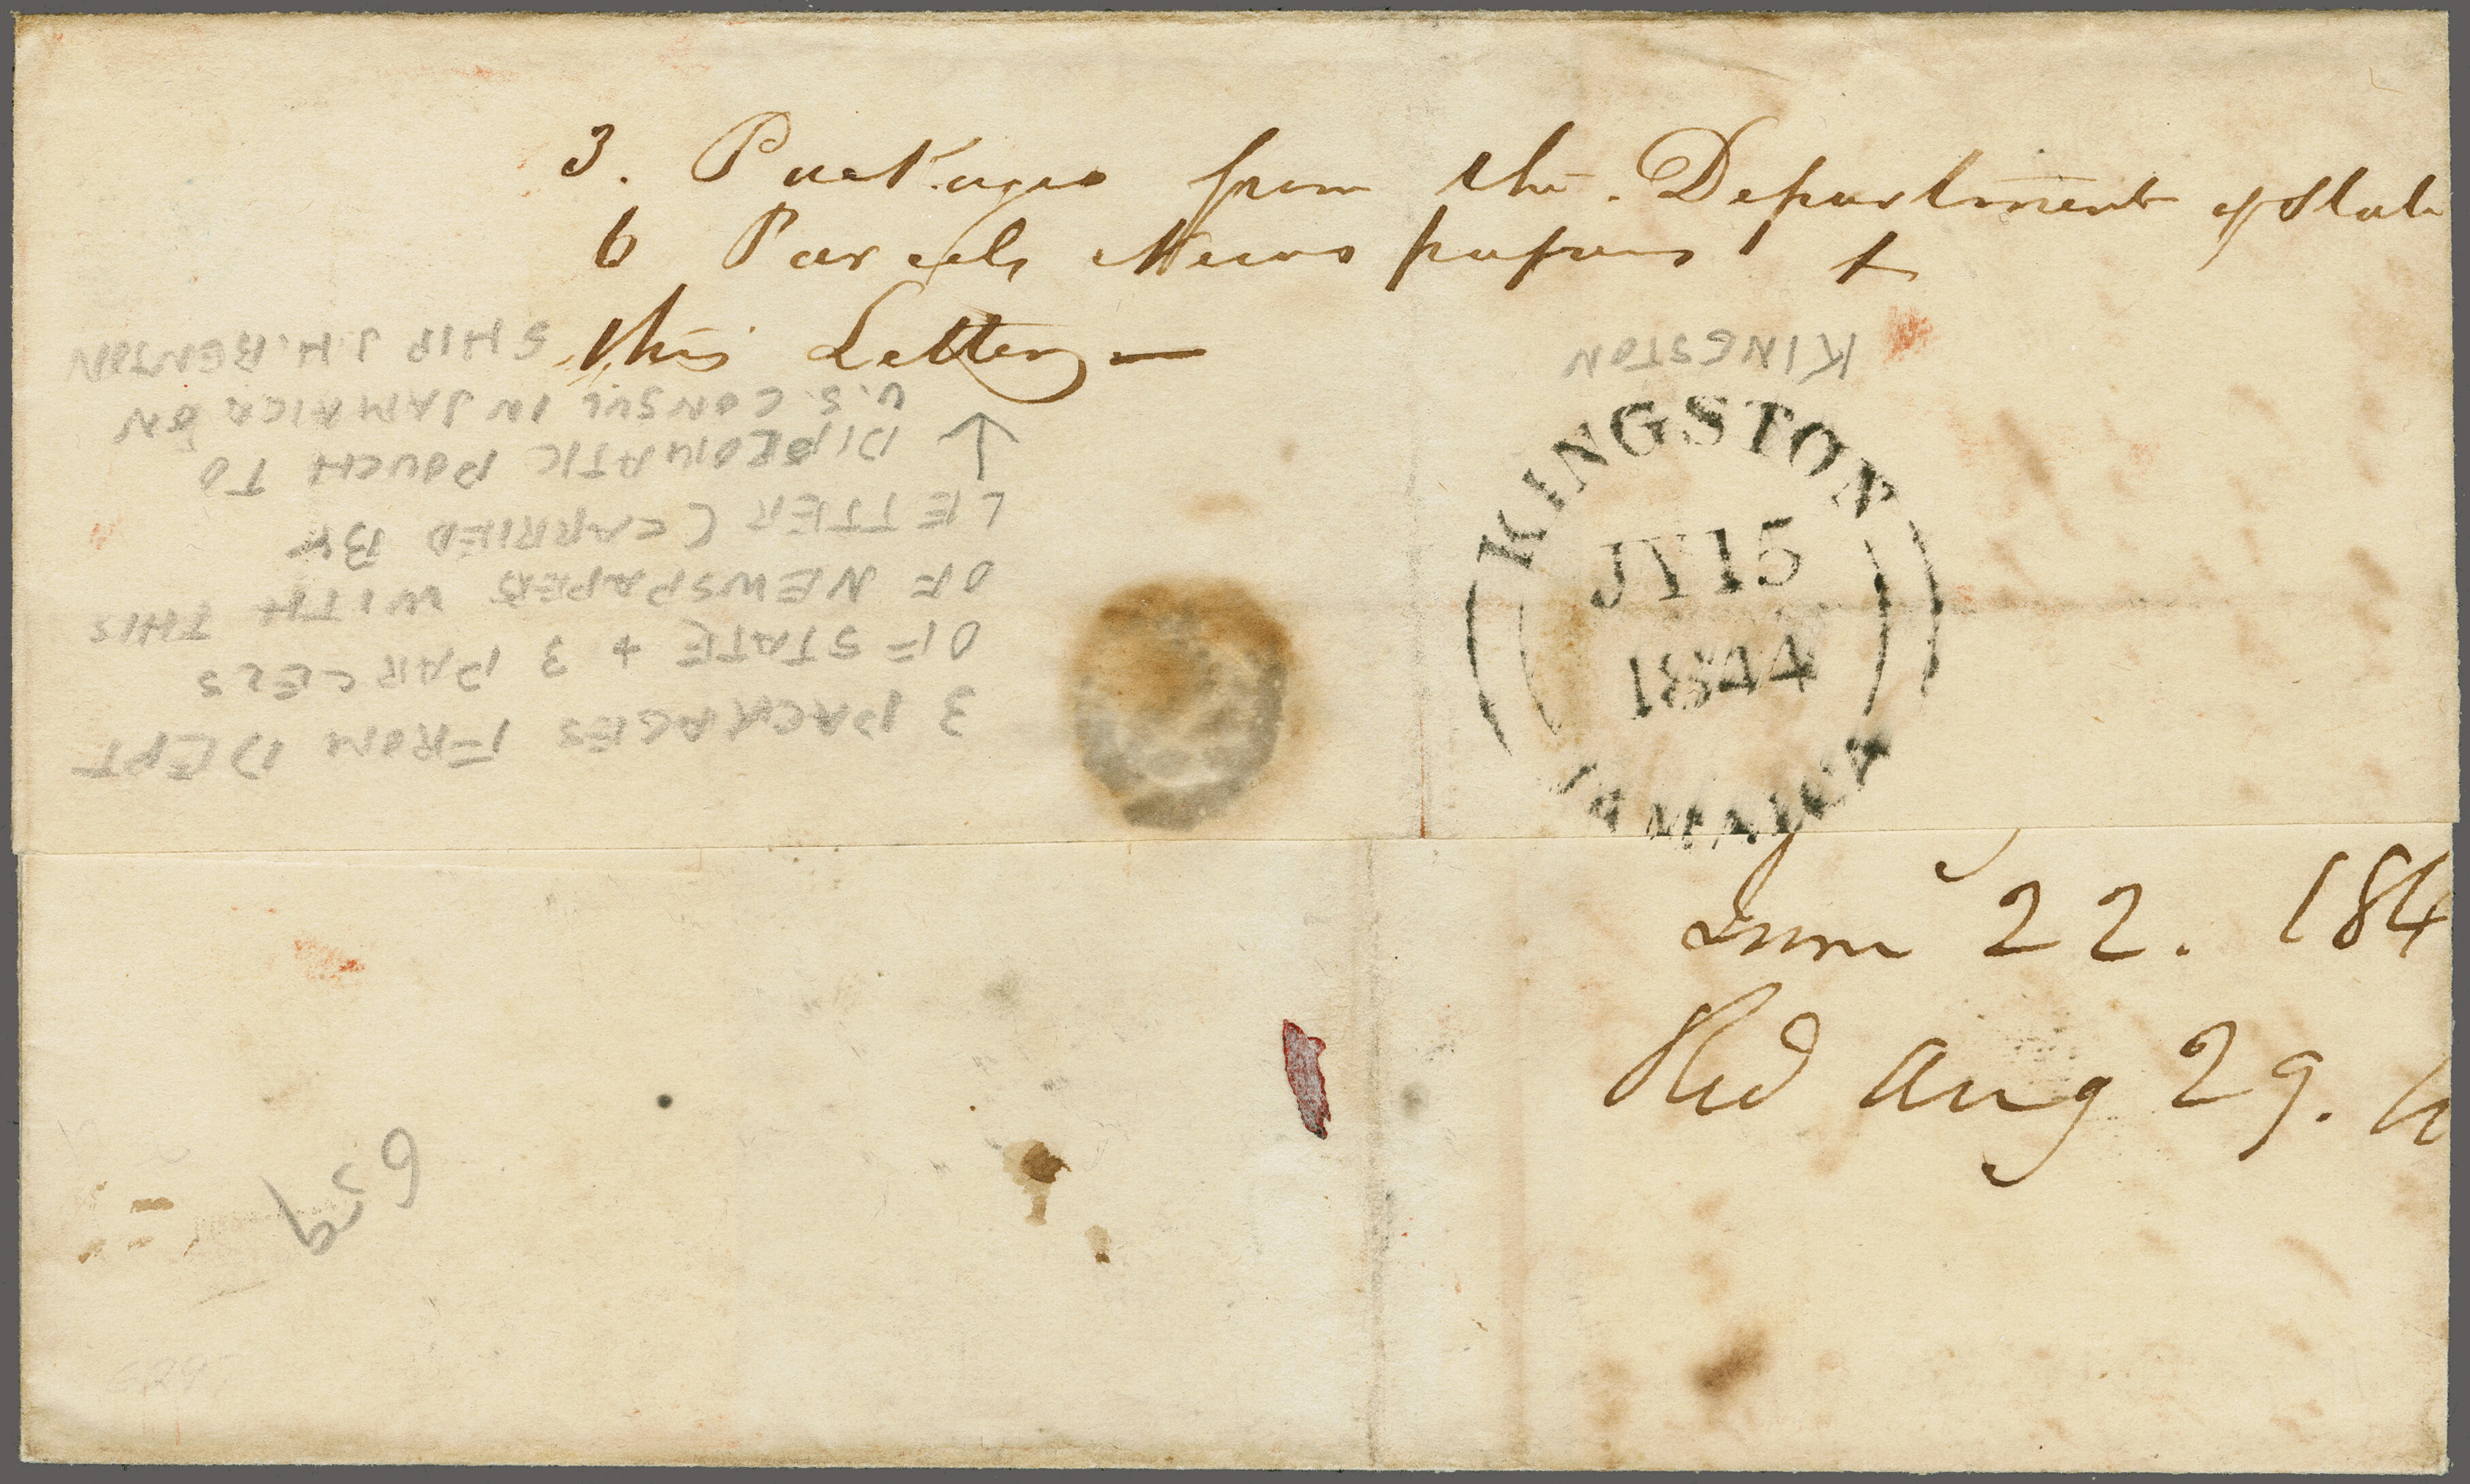 3. Packages from the. Department of State
6 Parcels News papers +
this Letter —
KINGSTON
KINGSTON
JY 15
1844
JAMAICA
3 PACKAGES FROM DEPT
OF STATE + 3 PARCELS
OF NEWSPAPER WITH THIS
LETTER (CARRIED BY
DIPLOMATIC POUCH TO
U.S. CONSUL IN JAMAICA ON
SHIP J.H. BENTON
June 22. 184
Red Aug 29.